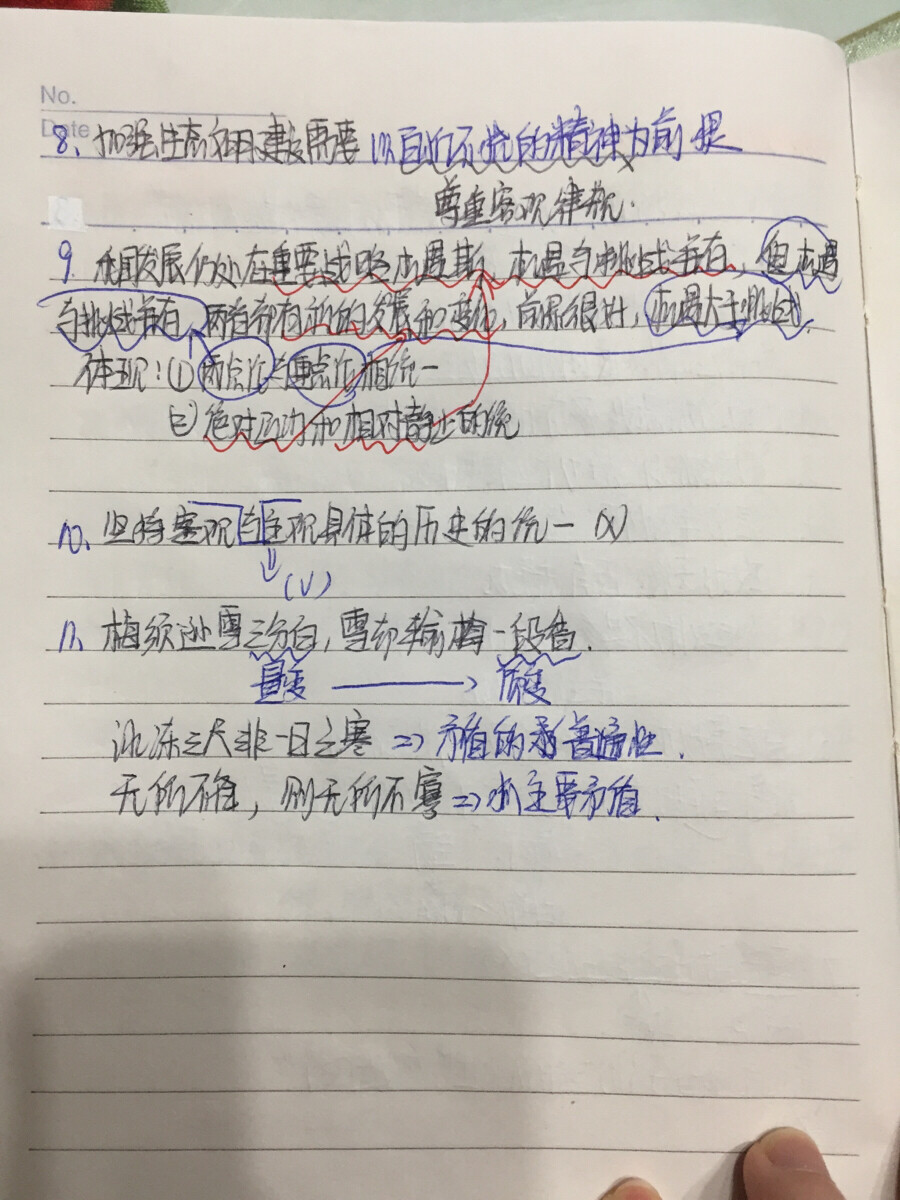 No.
Date
8、加强生态文明建设需要以自强不息的精神为前提
尊重客观规律.
9. 我国发展仍处在重要战略机遇期,机遇与挑战并存,但机遇
与挑战并存,两者都有新的发展和变化,前景很好,机遇大于挑战.
体现:(1)两点论与重点论相统一
(2)绝对运动和相对静止的统一
10、坚持客观与主观具体的历史的统一 (X)
(√)
11、梅须逊雪三分白,雪却输梅一段香.
量变 → 质变
冰冻三尺非一日之寒 => 矛盾的普遍性.
无所不备,则无所不寡=>主要矛盾.